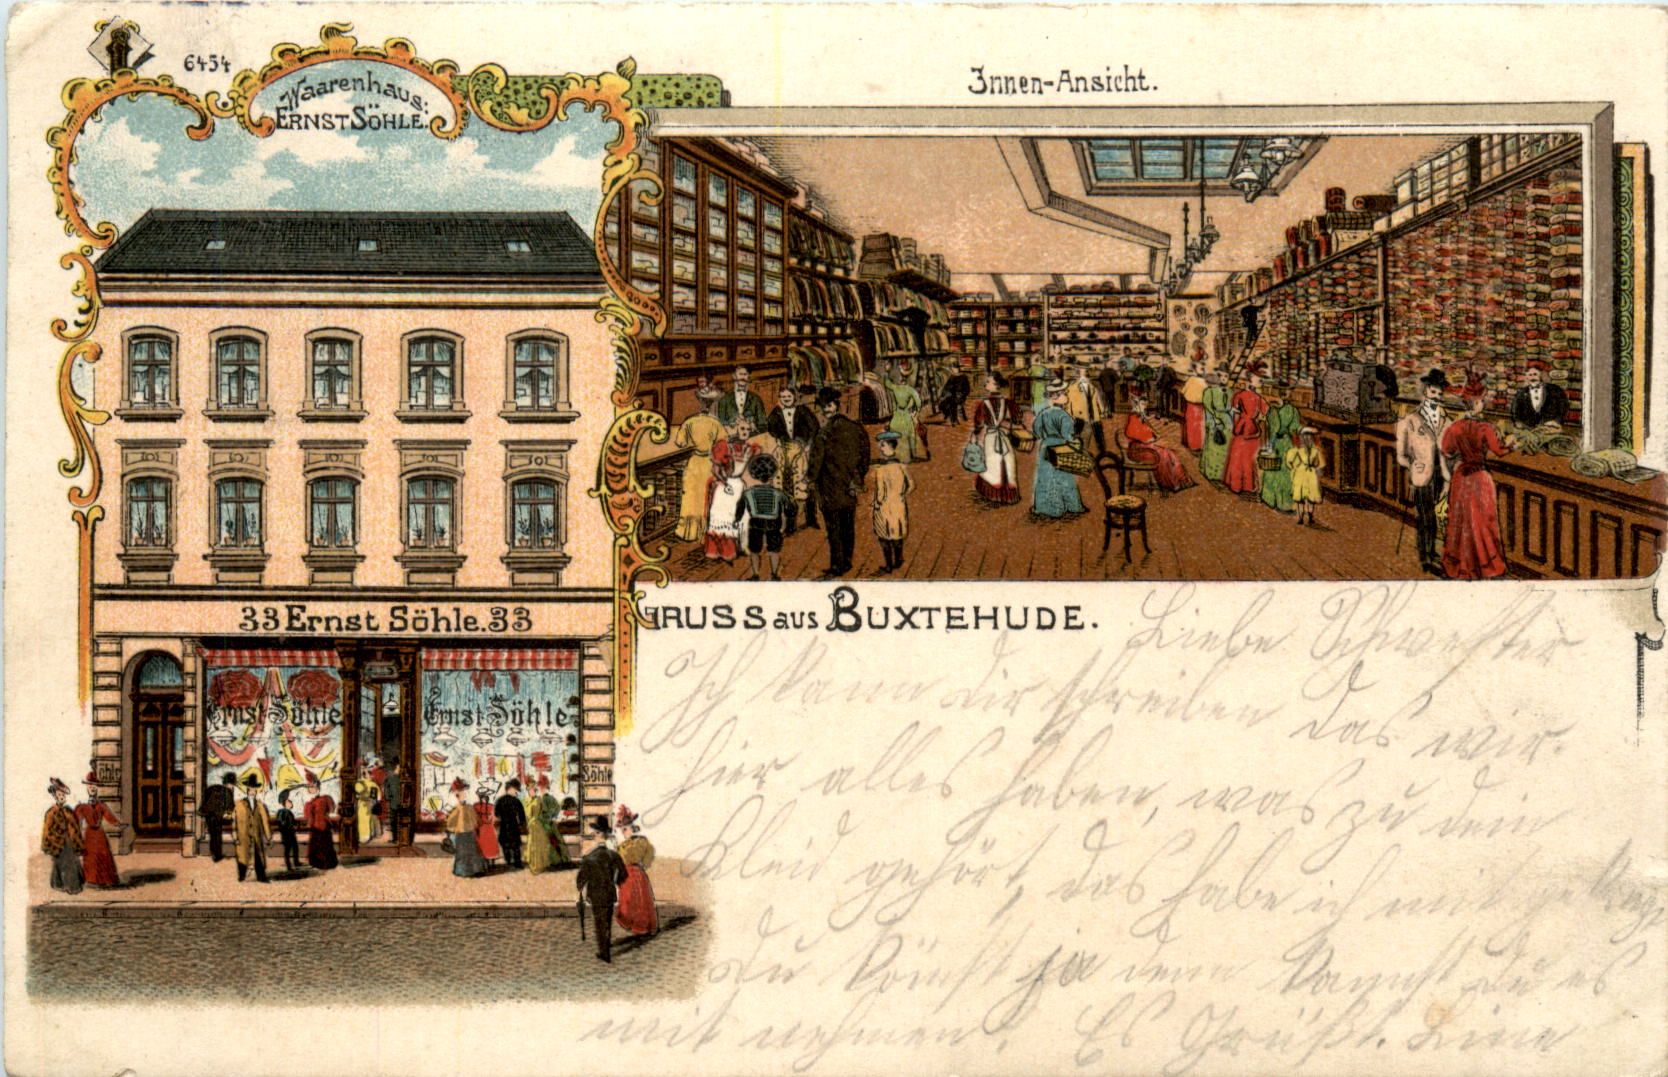 6454
Waarenhaus:
ERNST SÖHLE.
Innen-Ansicht.
33 Ernst Söhle. 33
Ernst Söhle
Ernst Söhle
Söhle
GRUSS aus BUXTEHUDE.
Liebe Schwester
Ich kann dir schreiben das wir
hier alles haben, was zu dein
Kleid gehört, das habe ich
Du könnst ja denn kannst du es
mit nehmen. Es Grüßt. Line